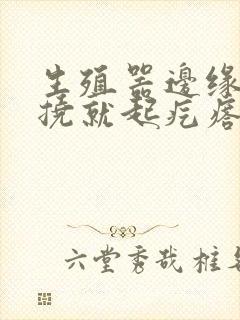 生殖器邊缘
撓就起疙瘩
六堂秀哉桩